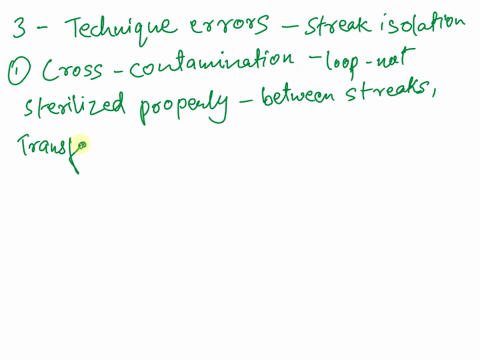 3 - Technique errors - streak isolation
① Cross - contamination - loop - not
sterilized properly - between streaks,
Transf